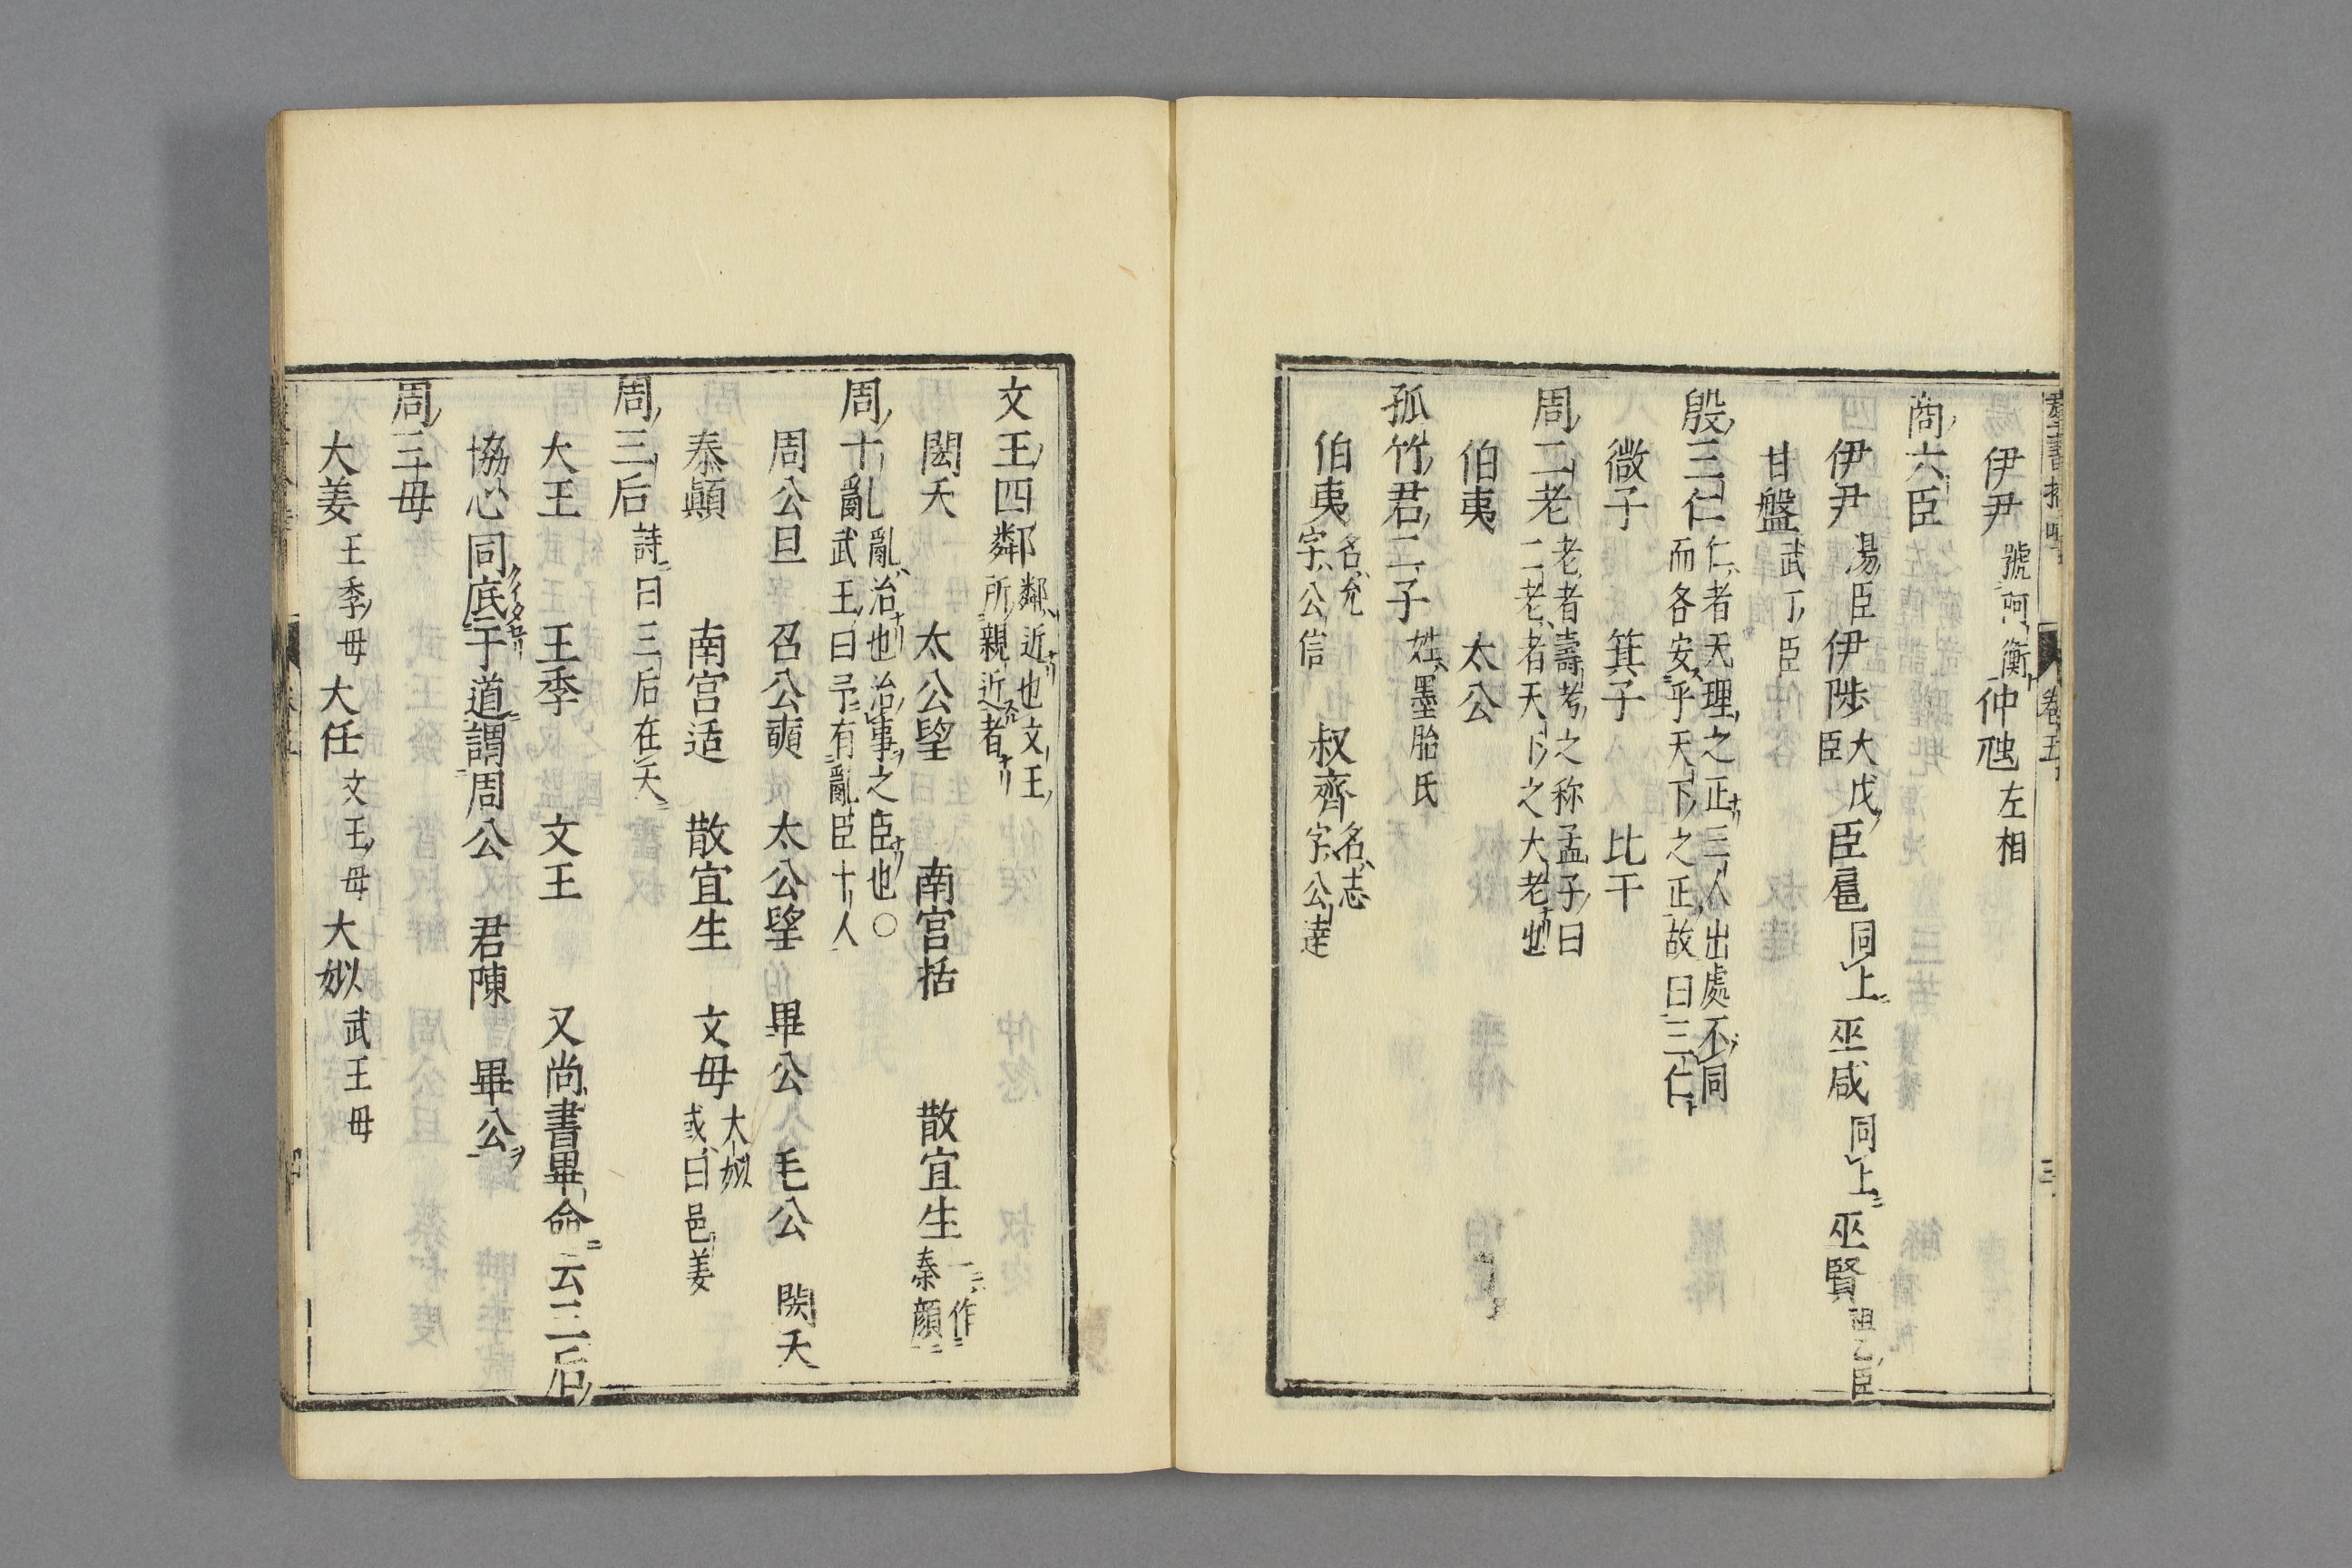 伊尹 號呵衡 仲虺 左相
商六臣
伊尹 湯臣 伊陟 大戊臣 臣扈 同上 巫咸 同上 巫賢 祖乙臣
甘盤 武丁臣
殷三仁 仁者天理之正三人出處不同而各安乎天下之正故曰三仁
微子 箕子 比干
周二老 老者壽考之称孟子曰二老者天下之大老也
伯夷 太公
孤竹君二子 姓墨胎氏
伯夷 名允字公信 叔齊 名志字公達
卷五
三
文王四鄰 鄰近也文王所親近者
閎夭 太公望 南宮括 散宜生 一作秦顔
周十亂 亂治也治事之臣也○武王曰予有亂臣十人
周公旦 召公奭 太公望 畢公 毛公 閎夭
泰顛 南宮适 散宜生 文母 大姒或曰邑姜
周三后 詩曰三后在天
大王 王季 文王 又尚書畢命云三后
協心同底于道謂周公 君陳 畢公
周三母
大姜 王季母 大任 文王母 大姒 武王母